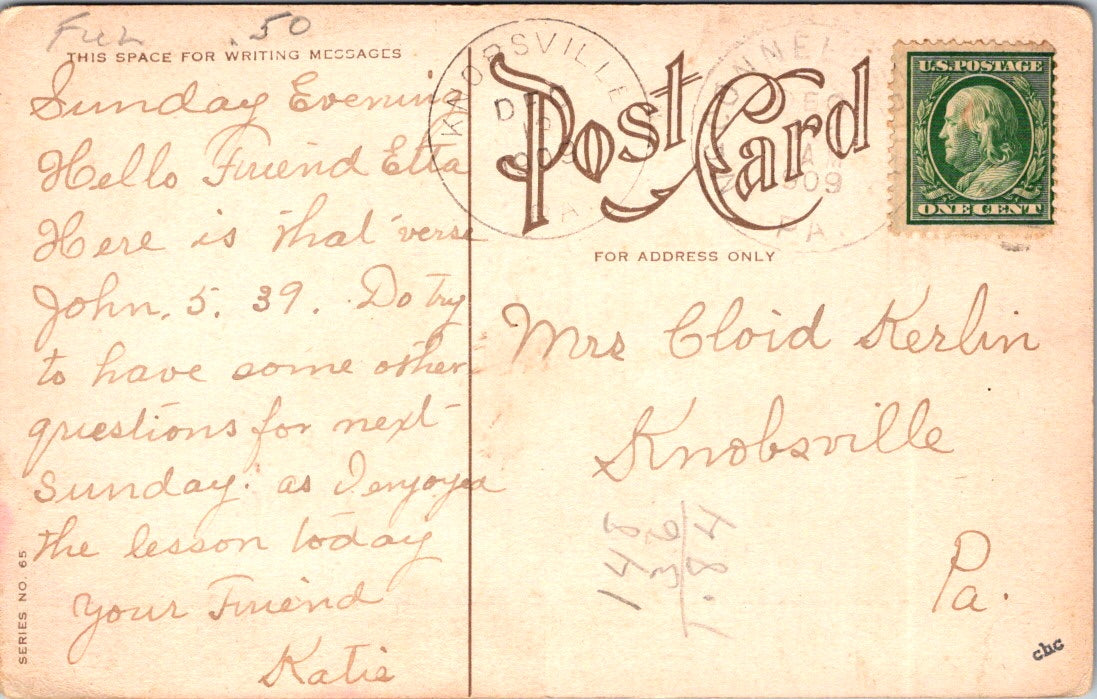 Ful .50
THIS SPACE FOR WRITING MESSAGES
Sunday Evening
Hello Friend Etta
Here is that verse
John. 5. 39. Do try
to have some other
questions for next
Sunday. as I enjoyed
the lesson today
Your Friend
Katie
SERIES NO. 65
KNOBSVILLE
DEC
1909
PA.
Post Card
AM
1909
PA.
U.S. POSTAGE
ONE CENT
FOR ADDRESS ONLY
Mrs Cloid Kerlin
Knobsville
Pa.
148
36
1.84
chc